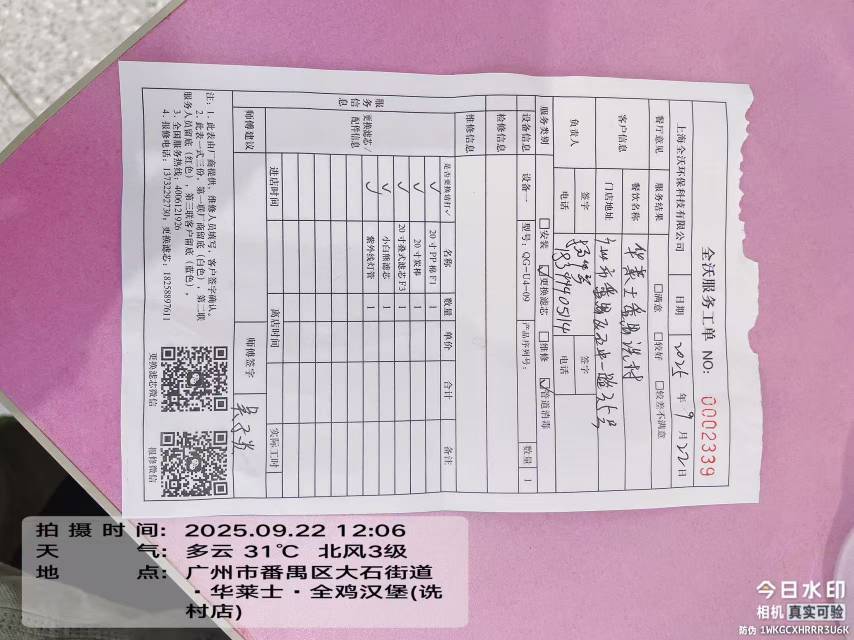 全沃服务工单 NO: 0002339
上海全沃环保科技有限公司 日期 2025 年 9 月 22 日
餐厅意见 服务结果 □满意 □较好 □较差不满意
客户信息 餐饮名称 华莱士番禺洗村
门店地址
负责人 签字 签字
电话 电话
服务类别 □安装 ☑更换滤芯 □维修 ☑管道消毒
设备信息 设备一 型号: QG-U4-09 产品序列号: 数量 1
检修信息
维修信息
服务信息 更换滤芯/配件信息 是否更换请打✓ 名称 数量 单价 合计 备注
✓ 20寸PP棉F1 1
✓ 20寸炭棒 1
✓ 20寸叠式滤芯F3 1
✓ 小白熊滤芯 1
✓ 紫外线灯管 1
进店时间 离店时间 实际工时
师傅建议 师傅签字
注: 1、此表由厂商提供, 维修人员填写, 客户签字确认。
2、此表一式三份, 第一联厂商留底(白色), 第二联
服务人员留底(红色), 第三联客户留底(蓝色),
3、全国服务热线: 4006121926
4、报修电话: 13732292730; 更换滤芯: 18258897611
更换滤芯微信 报修微信
拍摄时间: 2025.09.22 12:06
天 气: 多云 31℃ 北风3级
地 点: 广州市番禺区大石街道
·华莱士·全鸡汉堡(诜
村店)
今日水印
相机 真实可验
防伪 1WKGCXHRRR3U6K